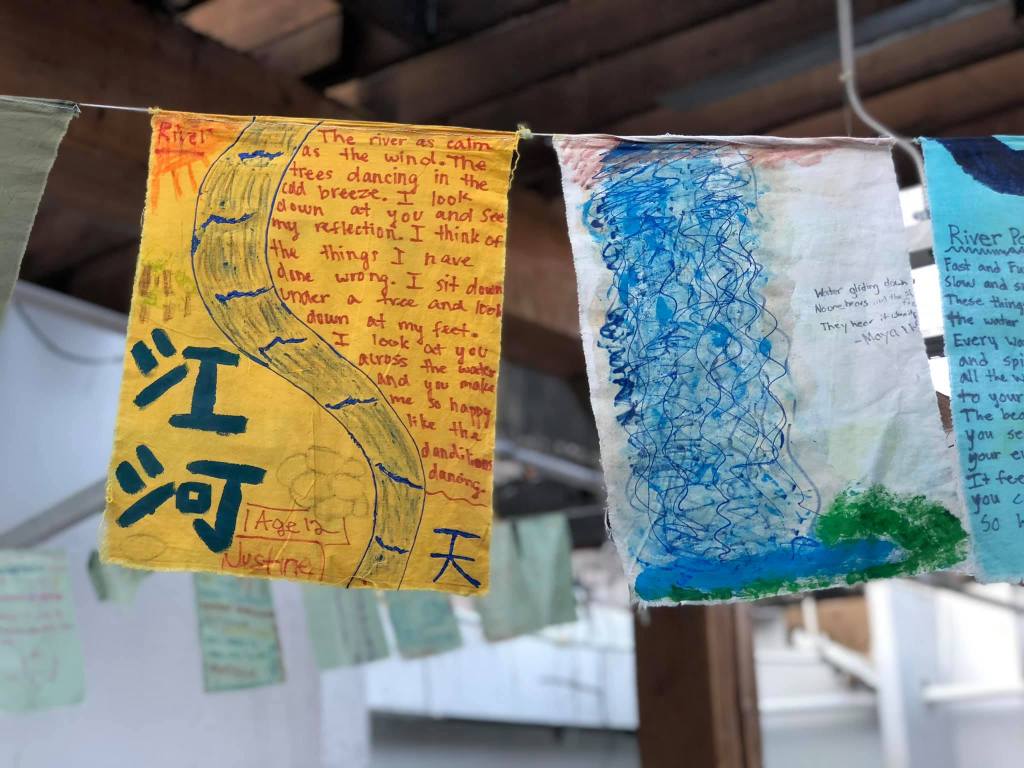 River
The river as calm
as the wind. The
trees dancing in the
cold breeze. I look
down at you and see
my reflection. I think of
the things I have
done wrong. I sit down
under a tree and look
down at my feet.
I look at you
across the water
and you make
me so happy
like the
danditions
dancing.
江
河
Age 12
Justine
天
Water gliding down
They hear it
-Maya
River
Fast and
Slow and
These thing
the water
Every
and
all the
to your
The
you se
your
It fee
you c
so